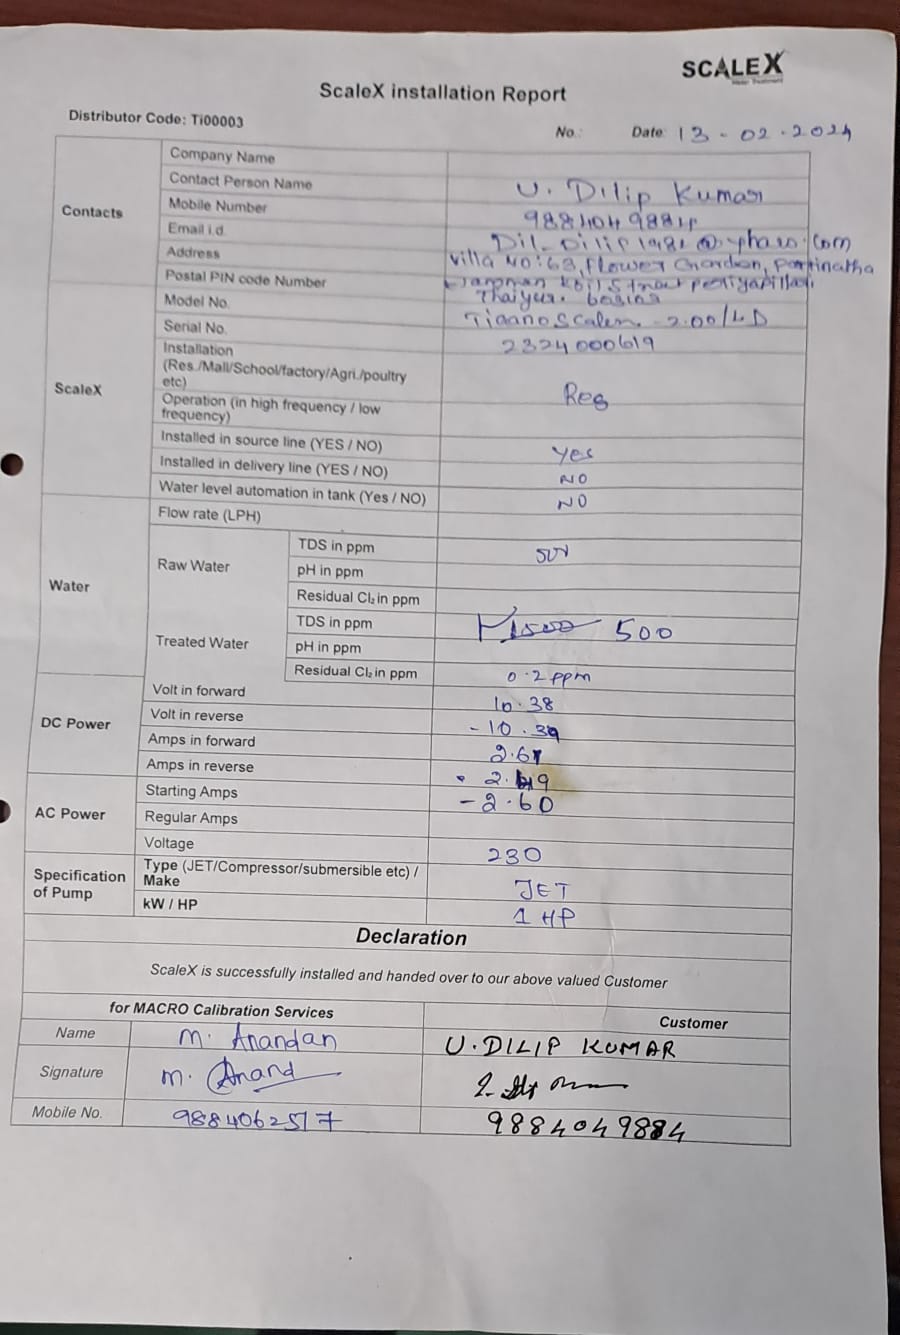 SCALEX
Water Treatment
ScaleX installation Report
Distributor Code: Ti00003
No.: Date: 13-02-2024
Contacts
Company Name
Contact Person Name U. Dilip Kumar
Mobile Number 9884049884
Email i.d.
Address Villa No: 63, Flower Garden,
Postal PIN code Number
Thaiyur.
ScaleX
Model No.
Serial No. 2324000619
Installation
(Res./Mall/School/factory/Agri./poultry
etc) Res
Operation (in high frequency / low
frequency)
Installed in source line (YES / NO) Yes
Installed in delivery line (YES / NO) NO
Water level automation in tank (Yes / NO) NO
Water
Flow rate (LPH)
Raw Water
TDS in ppm
pH in ppm
Residual Cl2 in ppm
Treated Water
TDS in ppm 500
pH in ppm
Residual Cl2 in ppm 0.2 ppm
DC Power
Volt in forward 10.38
Volt in reverse -10.39
Amps in forward 2.67
Amps in reverse
AC Power
Starting Amps -2.60
Regular Amps
Voltage 230
Specification
of Pump
Type (JET/Compressor/submersible etc) /
Make JET
kW / HP 1 HP
Declaration
ScaleX is successfully installed and handed over to our above valued Customer
for MACRO Calibration Services Customer
Name M. Anandan U. DILIP KUMAR
Signature M. Anand
Mobile No. 9884062517 9884049884